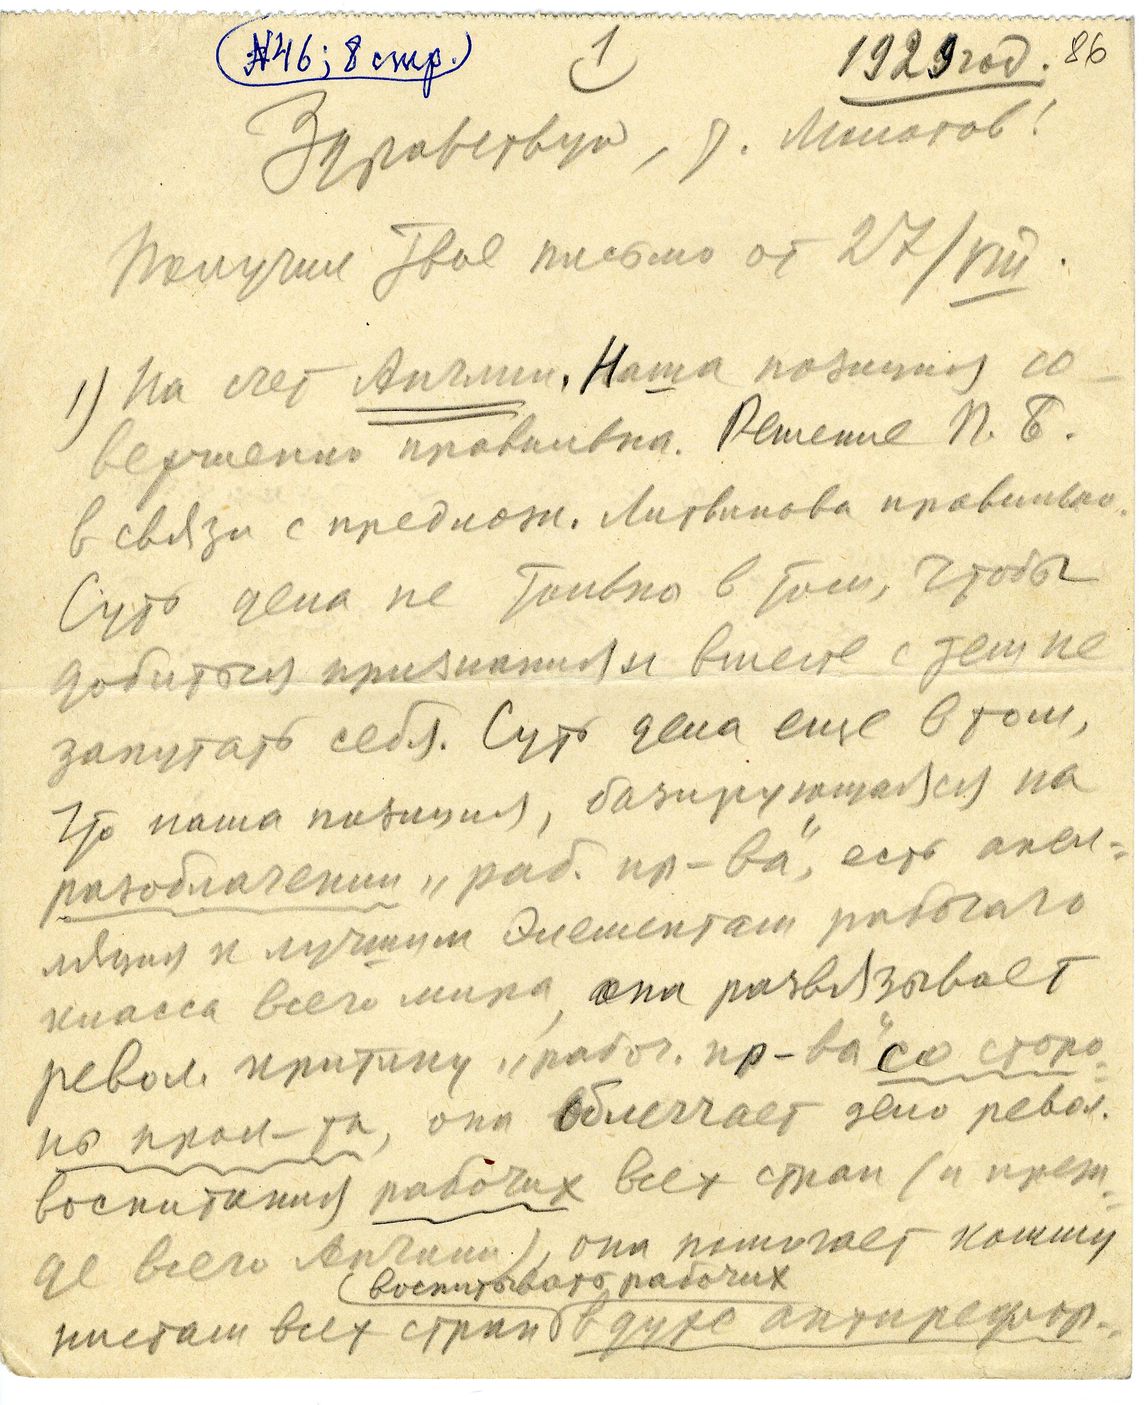 №46; 8 стр.
1
1929 год.
86
Здравствуй, т. Молотов!
Получил твое письмо от 27/VIII.
1) На счет Англии. Наша позиция со-
вершенно правильна. Решение П. Б.
в связи с предлож. Литвинова правильно.
Суть дела не только в том, чтобы
добиться признания и вместе с тем не
запутать себя. Суть дела еще в том,
что наша позиция, базирующаяся на
разоблачении „раб. пр-ва“, есть апел-
ляция к лучшим элементам рабочаго
класса всего мира, она развязывает
револ. критику „рабоч. пр-ва“ со сторо-
ны прол-та, она облегчает дело револ.
воспитания рабочих всех стран (и преж-
де всего Англии), она помогает комму
нистам всех стран
воспитывать рабочих
в духе антирефор-